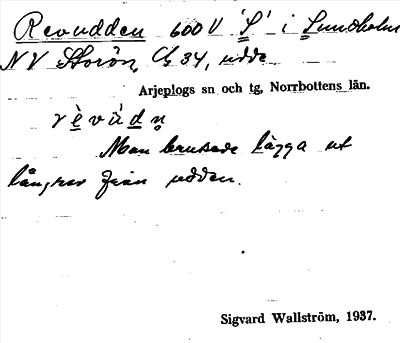 Revudden 600 V 'S' i Sundholm
NV Storön, G 34, udde
Arjeplogs sn och tg, Norrbottens län.
rèvùdn̥
Man brukade lägga ut
långrev från udden.
Sigvard Wallström, 1937.